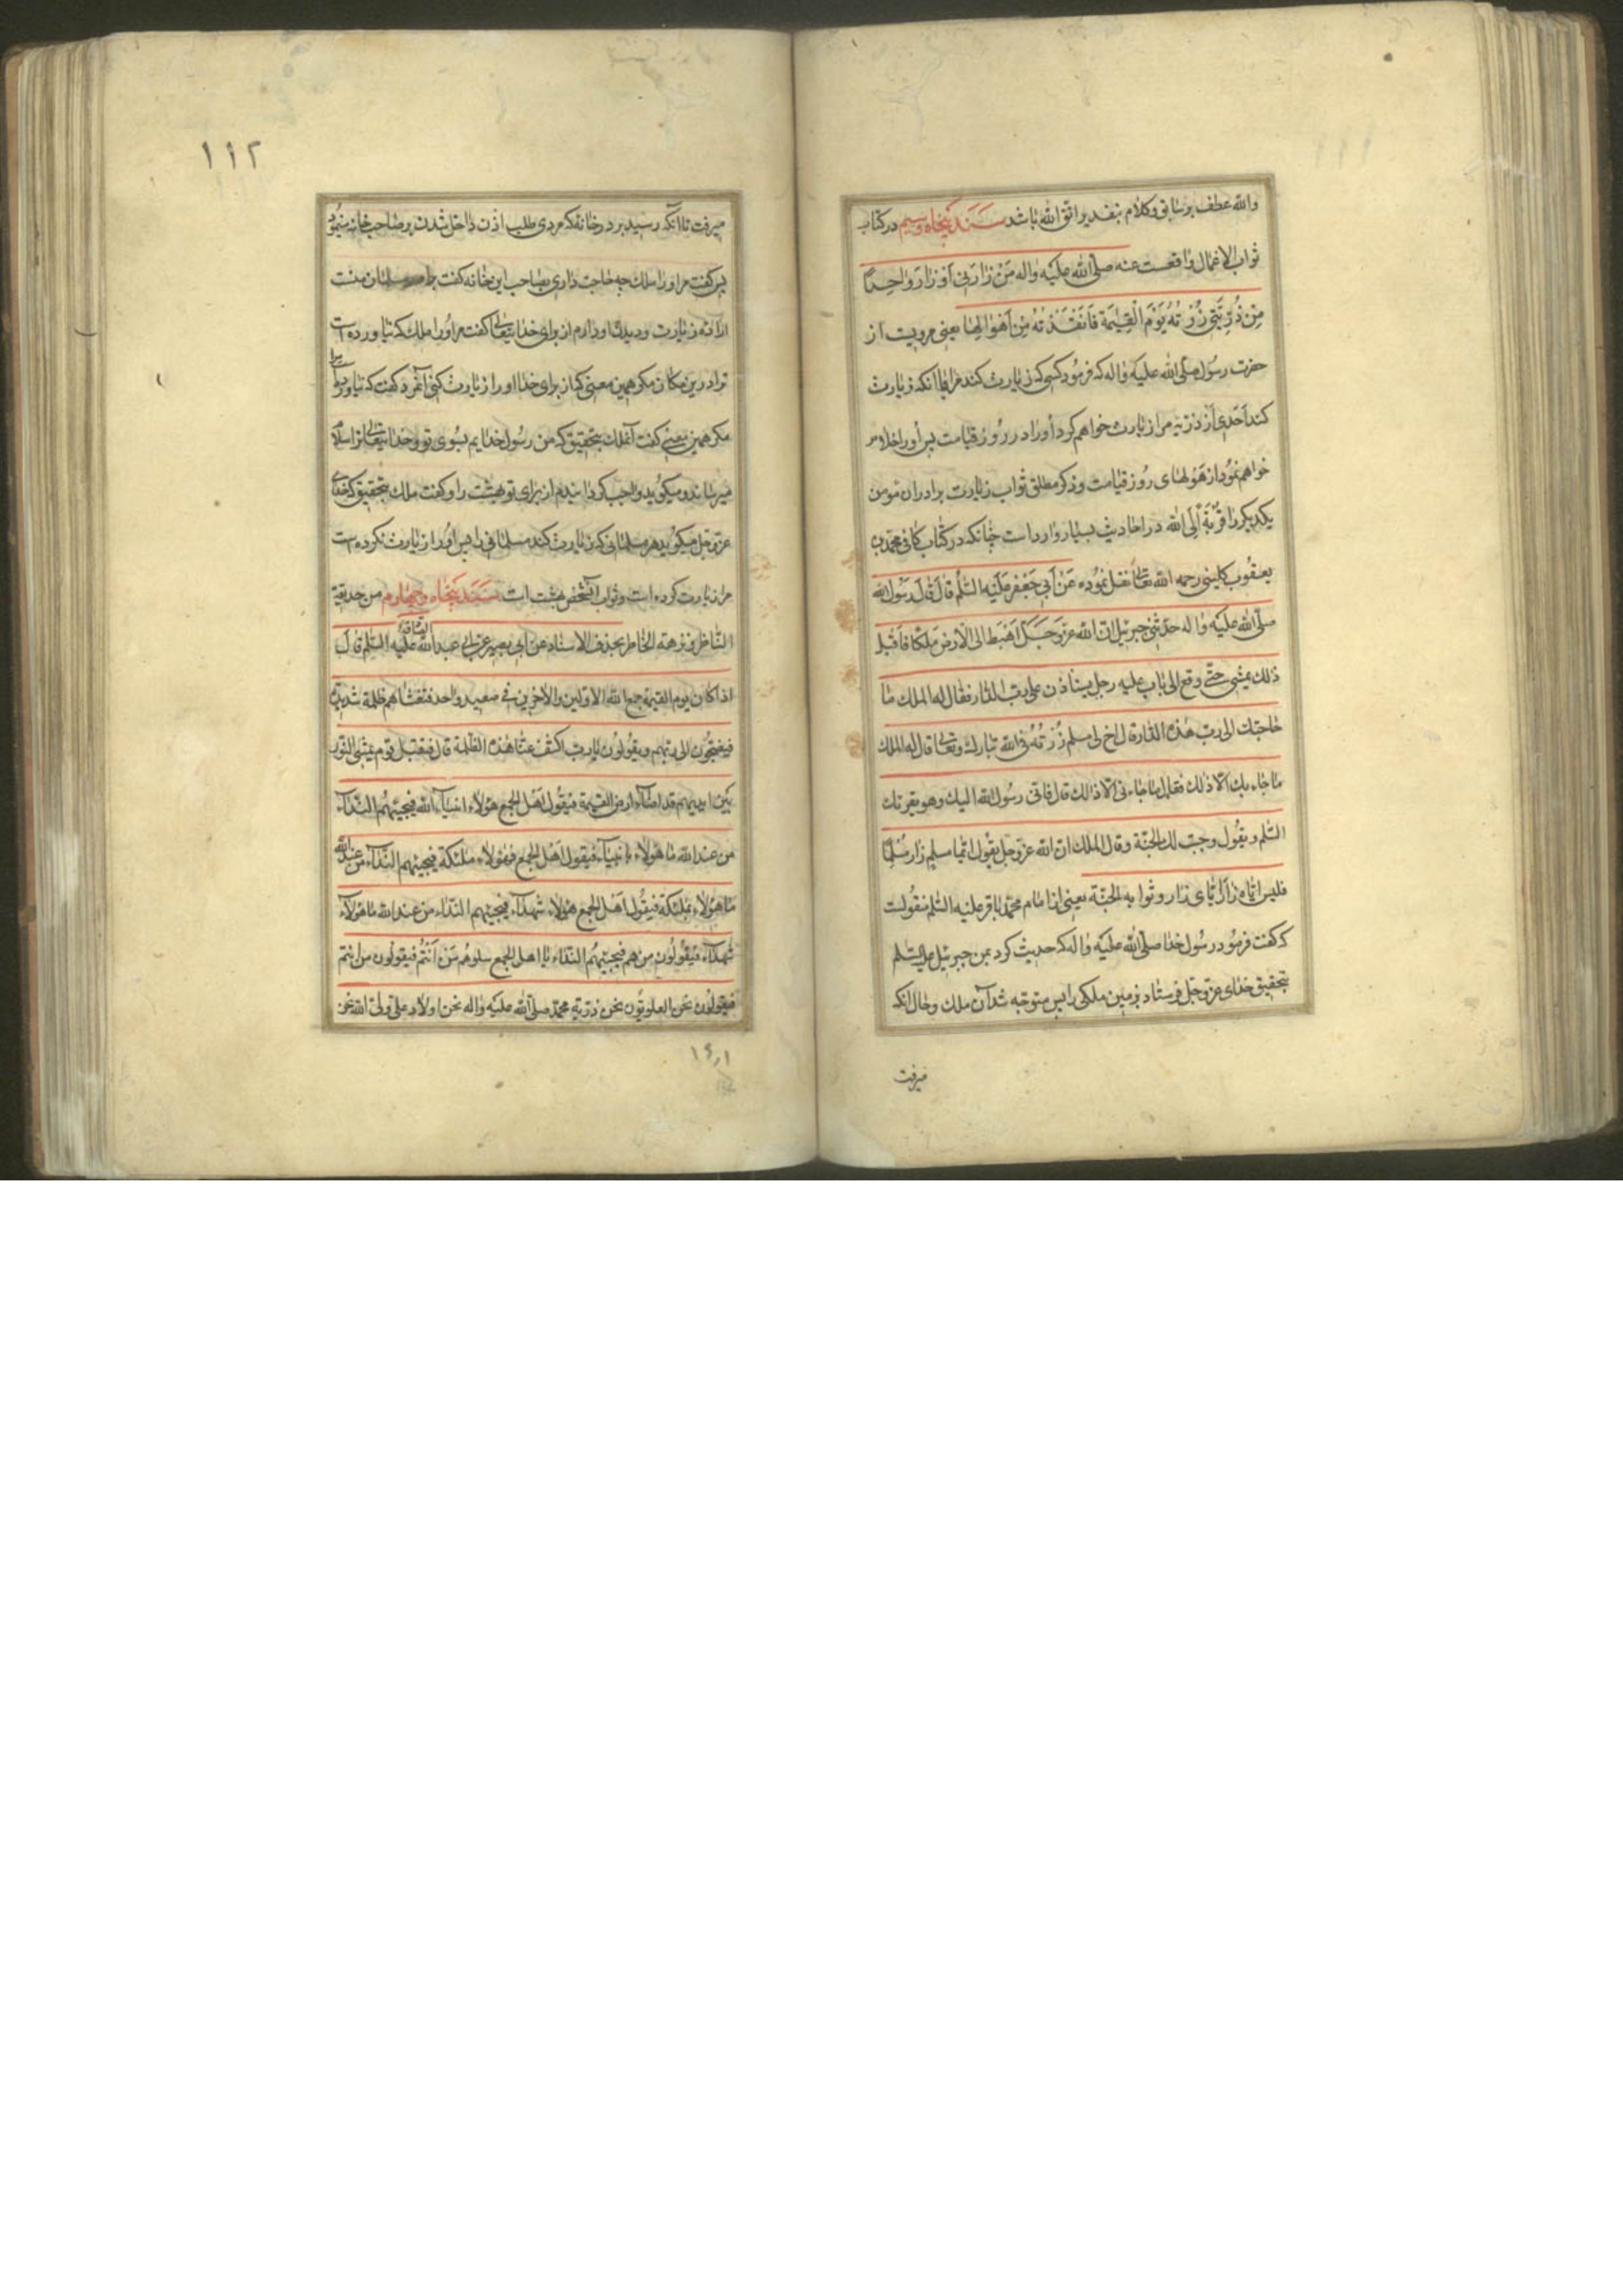 والله عطف بر سابق و کلام بتقدیر اتق الله باشد سند پنجاه و سیم در کتاب
ثواب الاعمال واقعست عنه صلی الله علیه واله مَنْ زارَنی اَوْ زارَ واحِداً
مِنْ ذُرِّیَّتی زُرْتُهُ یَوْمَ الْقِیٰمَةِ فَاَنْقَذْتُهُ مِنْ اَهْوالِها یعنی مرویست از
حضرت رسول صلی الله علیه واله که فرمود کسی که زیارت کند مرا یا آنکه زیارت
کند احدی از ذریه مرا زیارت خواهم کرد اورا در روز قیامت پس اورا خلاص
خواهم نمود از هولهای روز قیامت و ذکر مطلق ثواب زیارت برادران مؤمن
یکدیگر را قربة الی الله در احادیث بسیار وارد است چنانکه در کتاب کافی محمد بن
یعقوب کلینی رحمه الله تعالی نقل نموده عَنْ اَبی جَعْفَر عَلَیْهِ السّلم قالَ قالَ رسول الله
صلی الله علیه واله حدثنی جبرئیل ان الله عز وجل اهبط الی الارض ملکا فاقبل
ذلک یمشی حتی وقع الی باب علیه رجل یستاذن علی رب الدار فقال له الملک ما
حاجتک الی رب هذه الدار قال اخ لی مسلم زرته فی الله تبارک وتعالی قال له الملک
ما جاء بک الا ذلک فقال ما جاءنی الا ذالک قال فانی رسول الله الیک وهو یقرئک
السلم ویقول وجبت لک الجنة وقال الملک ان الله عز وجل یقول ایما مسلم زار مسلما
فلیس ایاه زار ایای زار وثوابه الجنة یعنی از امام محمد باقر علیه السلم منقولست
که گفت فرمود رسول خدا صلی الله علیه واله که حدیث کرد بمن جبرئیل علیه السلم
بتحقیق خدای عز وجل فرستاد بزمین ملکی را پس متوجه شد آن ملک وحال انکه
میرفت
۱۱۲
میرفت تا آنکه رسید بر در خانه که مردی طلب اذن داخل شدن بر صاحب خانه مینمود
پس گفت مر اورا ملک چه حاجت داری بصاحب این خانه گفت منست
اراده زیارت و دیدن او دارم از برای خدایتعالی گفت مر اورا ملک که نیاورده است
ترا درین مکان مگر همین معنی که از برای خدا او را زیارت کنی آنمرد گفت که نیاورده مرا
مگر همین معنی گفت آنملک بتحقیق که من رسول خدایم بسوی تو و خدایتعالی ترا سلام
میرساند و میگوید واجب گردانیدم از برای تو بهشت را و گفت ملک بتحقیق که خدای
عز وجل میگوید هر مسلمانی که زیارت کند مسلمانی را پس اورا زیارت نکرده است
مرا زیارت کرده است وثواب آنشخص بهشت است سند پنجاه و چهارم من حدیقة
الناظر ونزهة الخاطر بحذف الاسناد عن ابی بصیر عن ابی عبد الله الصادق علیه السلم قال
اذا کان یوم القیمة جمع الله الاولین والاخرین فی صعید واحد فتغشاهم ظلمة شدیدة
فیضجون الی ربهم ویقولون یارب اکشف عنا هذه الظلمة قال فیقبل قوم یمشی النور
بین ایدیهم قد اضاء ارض القیمة فیقول اهل الجمع هؤلاء انبیاء الله فیجیئهم النداء
من عند الله ما هؤلاء بانبیاء فیقول اهل الجمع فهؤلاء ملئکة فیجیئهم النداء من عند الله
ما هؤلاء بملئکة فیقول اهل الجمع هؤلاء شهداء فیجیئهم النداء من عند الله ما هؤلاء
شهداء فیقولون من هم فیجیئهم النداء یا اهل الجمع سلوهم من انتم فیقولون من انتم
فیقولون نحن العلویون نحن ذریة محمد صلی الله علیه واله نحن اولاد علی ولی الله نحن